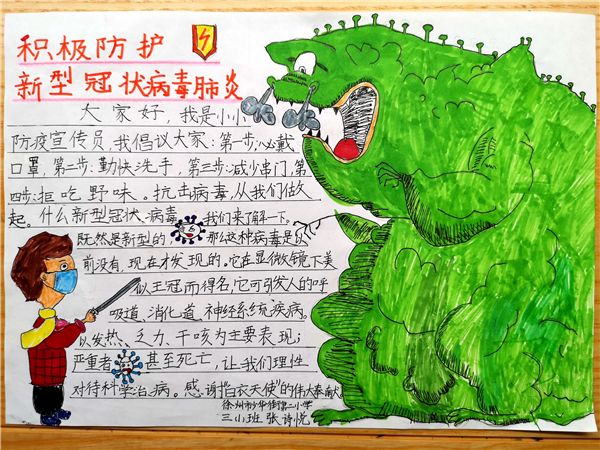 积极防护
新型冠状病毒肺炎
大家好,我是小小
防疫宣传员,我倡议大家:第一步:必戴
口罩,第二步:勤快洗手,第三步:减少串门,第
四步:拒吃野味。抗击病毒,从我们做
起。什么新型冠状病毒 我们来了解一下。
既然是新型的 那么这种病毒是以
前没有,现在才发现的。它在显微镜下美
似王冠而得名,它可引发人的呼
吸道、消化道、神经系统疾病。
以发热、乏力、干咳为主要表现;
严重者 甚至死亡,让我们理性
对待科学治病。感谢“白衣天使”的伟大奉献
徐州市少华街第二小学
三小班 张诗悦